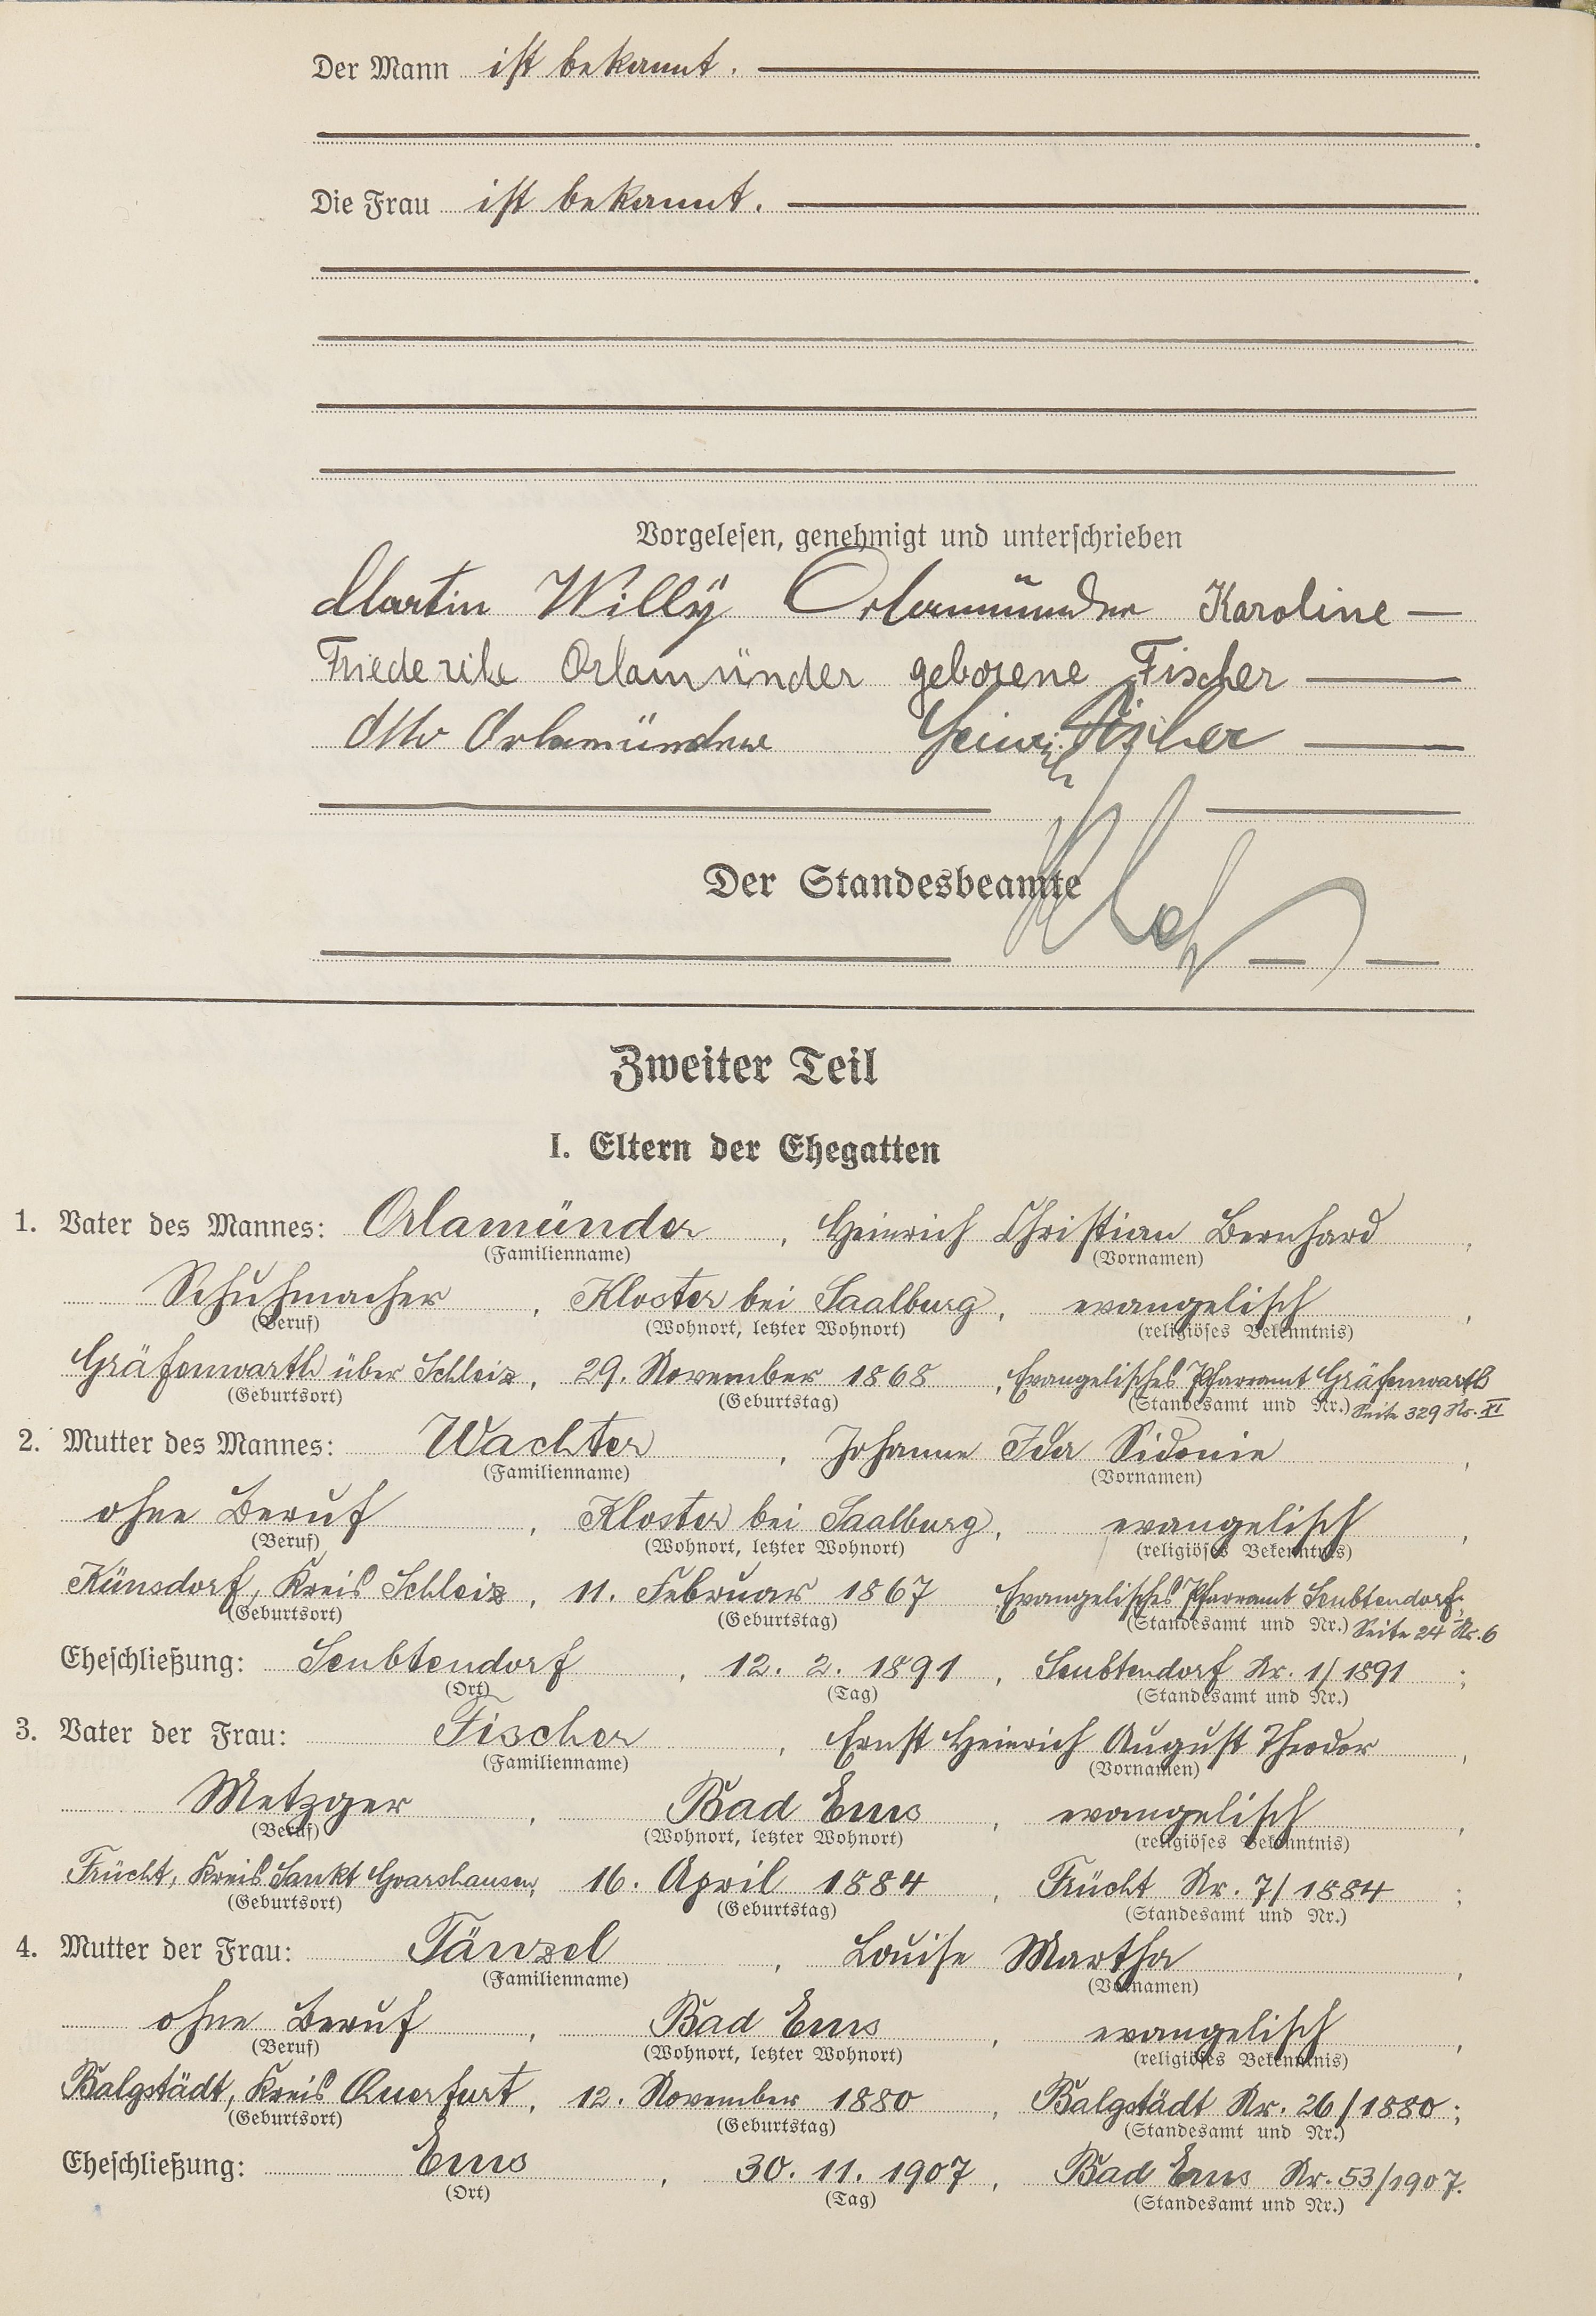 Der Mann ist bekannt.
Die Frau ist bekannt.
Vorgelesen, genehmigt und unterschrieben
Martin Willÿ Orlamünder Karoline
Friederike Orlamünder geborene Fischer
Otto Orlamünder Heinrich Fischer
Der Standesbeamte
Zweiter Teil
I. Eltern der Ehegatten
1. Vater des Mannes: Orlamünder, Heinrich Christian Bernhard,
(Familienname) (Vornamen)
Schuhmacher, Kloster bei Saalburg, evangelisch,
(Beruf) (Wohnort, letzter Wohnort) (religiöses Bekenntnis)
Gräfenwarth über Schleiz, 29. November 1868, Evangelisches Pfarramt Gräfenwarth
(Geburtsort) (Geburtstag) (Standesamt und Nr.) Seite 329 Nr. XI
2. Mutter des Mannes: Wachter, Johanne Ida Sidonie,
(Familienname) (Vornamen)
ohne Beruf, Kloster bei Saalburg, evangelisch,
(Beruf) (Wohnort, letzter Wohnort) (religiöses Bekenntnis)
Künsdorf, Kreis Schleiz, 11. Februar 1867 Evangelisches Pfarramt Seubtendorf,
(Geburtsort) (Geburtstag) (Standesamt und Nr.) Seite 24 Nr. 6
Eheschließung: Seubtendorf, 12. 2. 1891, Seubtendorf Nr. 1/1891;
(Ort) (Tag) (Standesamt und Nr.)
3. Vater der Frau: Fischer, Ernst Heinrich August Theodor,
(Familienname) (Vornamen)
Metzger, Bad Ems, evangelisch,
(Beruf) (Wohnort, letzter Wohnort) (religiöses Bekenntnis)
Frücht, Kreis Sankt Goarshausen, 16. April 1884, Frücht Nr. 7/1884;
(Geburtsort) (Geburtstag) (Standesamt und Nr.)
4. Mutter der Frau: Tänzel, Louise Martha,
(Familienname) (Vornamen)
ohne Beruf, Bad Ems, evangelisch,
(Beruf) (Wohnort, letzter Wohnort) (religiöses Bekenntnis)
Balgstädt, Kreis Querfurt, 12. November 1880, Balgstädt Nr. 26/1880;
(Geburtsort) (Geburtstag) (Standesamt und Nr.)
Eheschließung: Ems, 30. 11. 1907, Bad Ems Nr. 53/1907.
(Ort) (Tag) (Standesamt und Nr.)